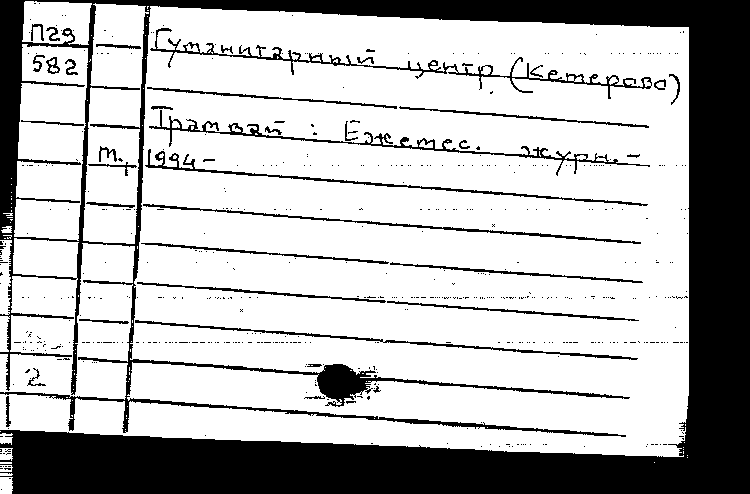 П29 Гуманитарный центр (Кемерово)
582
Трамвай : Ежемес. журн. –
т., 1994 –
2